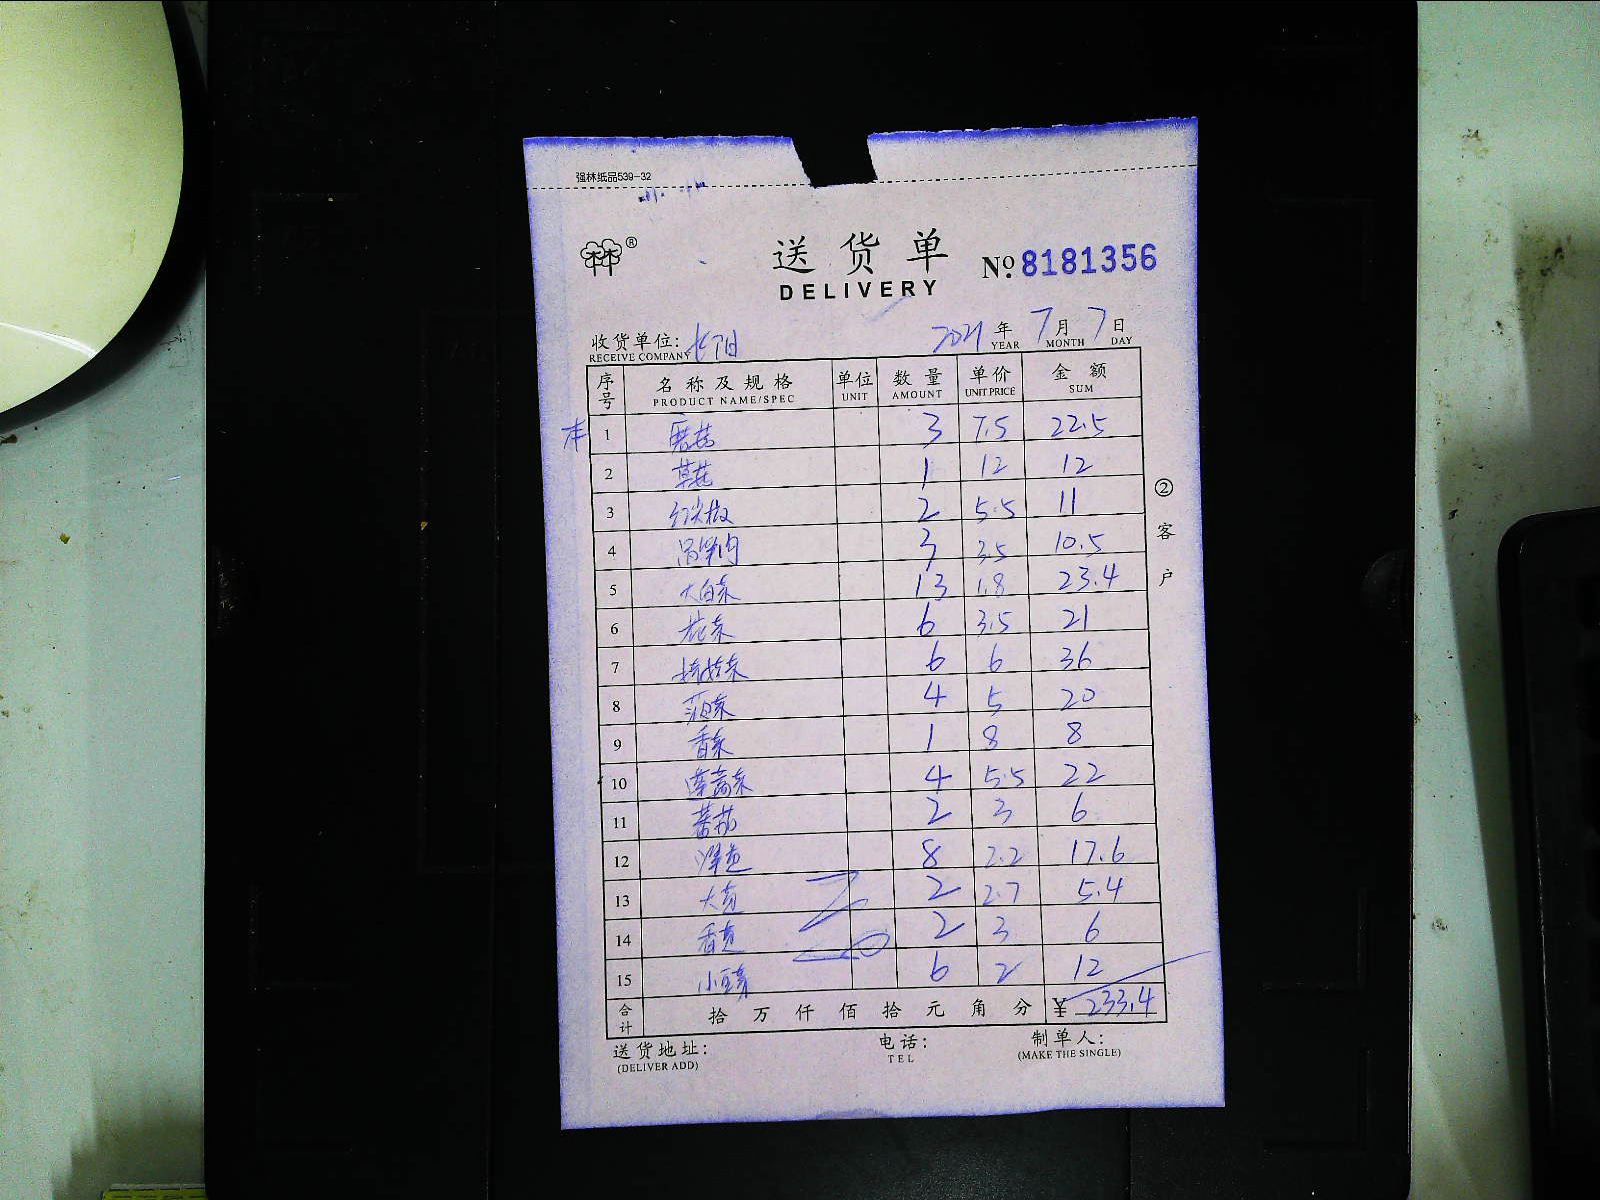 强林纸品539-32
林®
送货单 No.8181356
DELIVERY
收货单位: 2021年 7月 7日
RECEIVE COMPANY YEAR MONTH DAY
序号 名称及规格 单位 数量 单价 金额
PRODUCT NAME/SPEC UNIT AMOUNT UNIT PRICE SUM
1 磨菇 3 7.5 22.5
2 草菇 1 12 12
3 红尖椒 2 5.5 11
4 3 3.5 10.5
5 大白菜 13 1.8 23.4
6 花菜 6 3.5 21
7 6 6 36
8 菠菜 4 5 20
9 香菜 1 8 8
10 茼蒿菜 4 5.5 22
11 蕃茄 2 3 6
12 洋葱 8 2.2 17.6
13 大黄 2 2.7 5.4
14 香芹 2 3 6
15 小青 6 2 12
合计 拾万仟佰拾元角分 ¥ 233.4
②客户
送货地址: 电话: 制单人:
(DELIVER ADD) TEL (MAKE THE SINGLE)